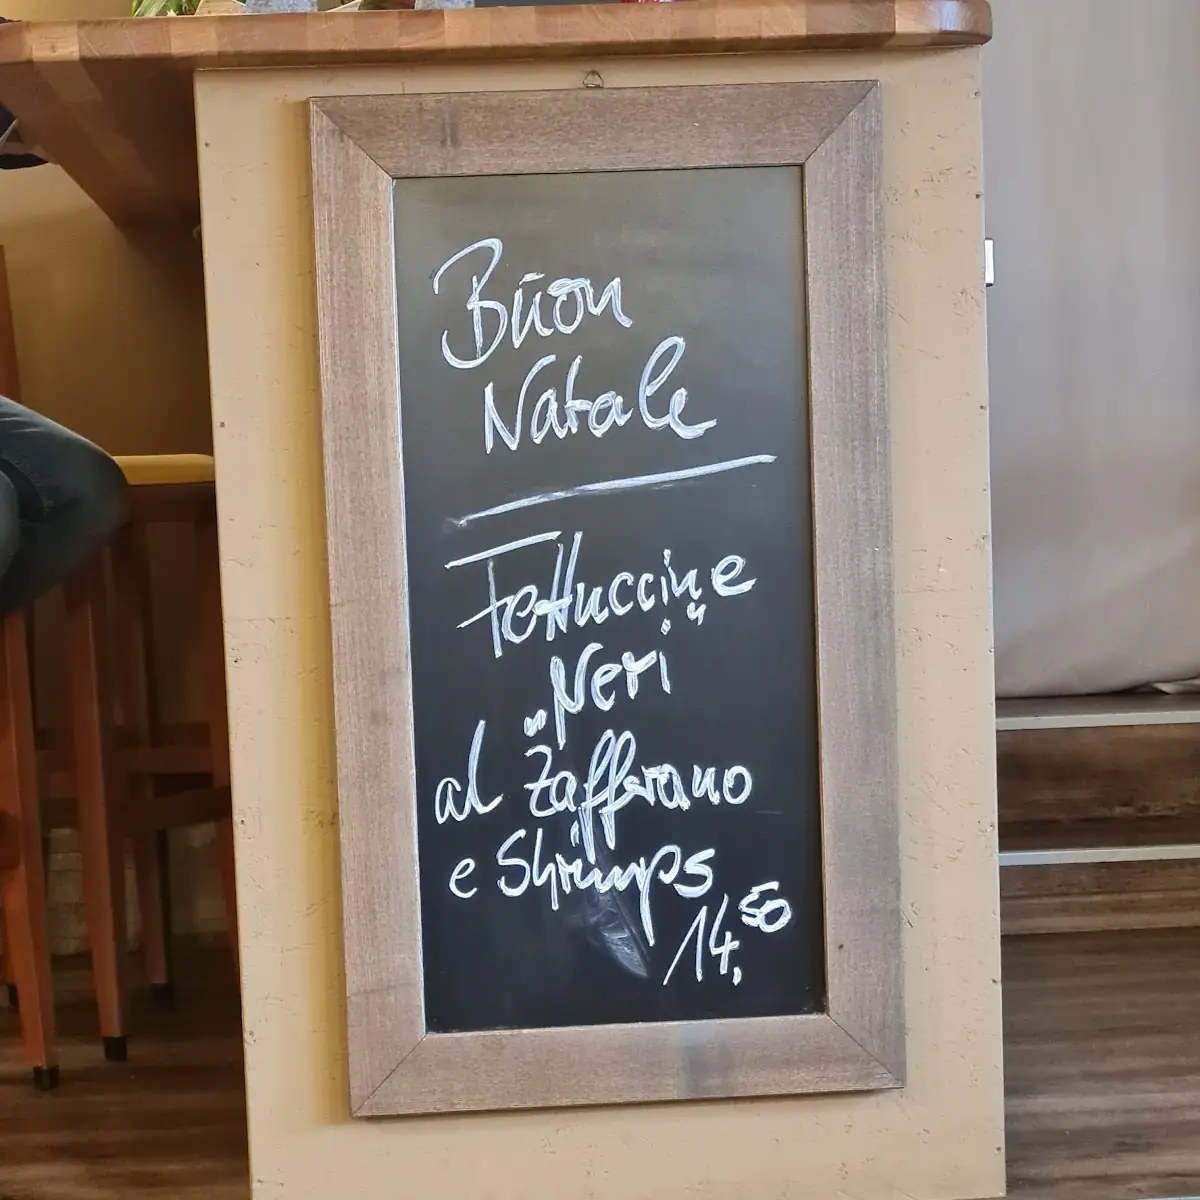 Buon
Natale
Fettuccine
"Neri"
al Zafferano
e Shrimps
14,50